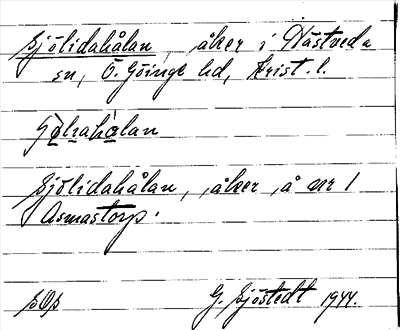 Sjölidahålan, åker i Hästveda
sn, Ö. Göinge hd, Krist. l.
Sjölidahålan, åker, å nr 1
Asmastorp.
G. Sjöstedt 1944.